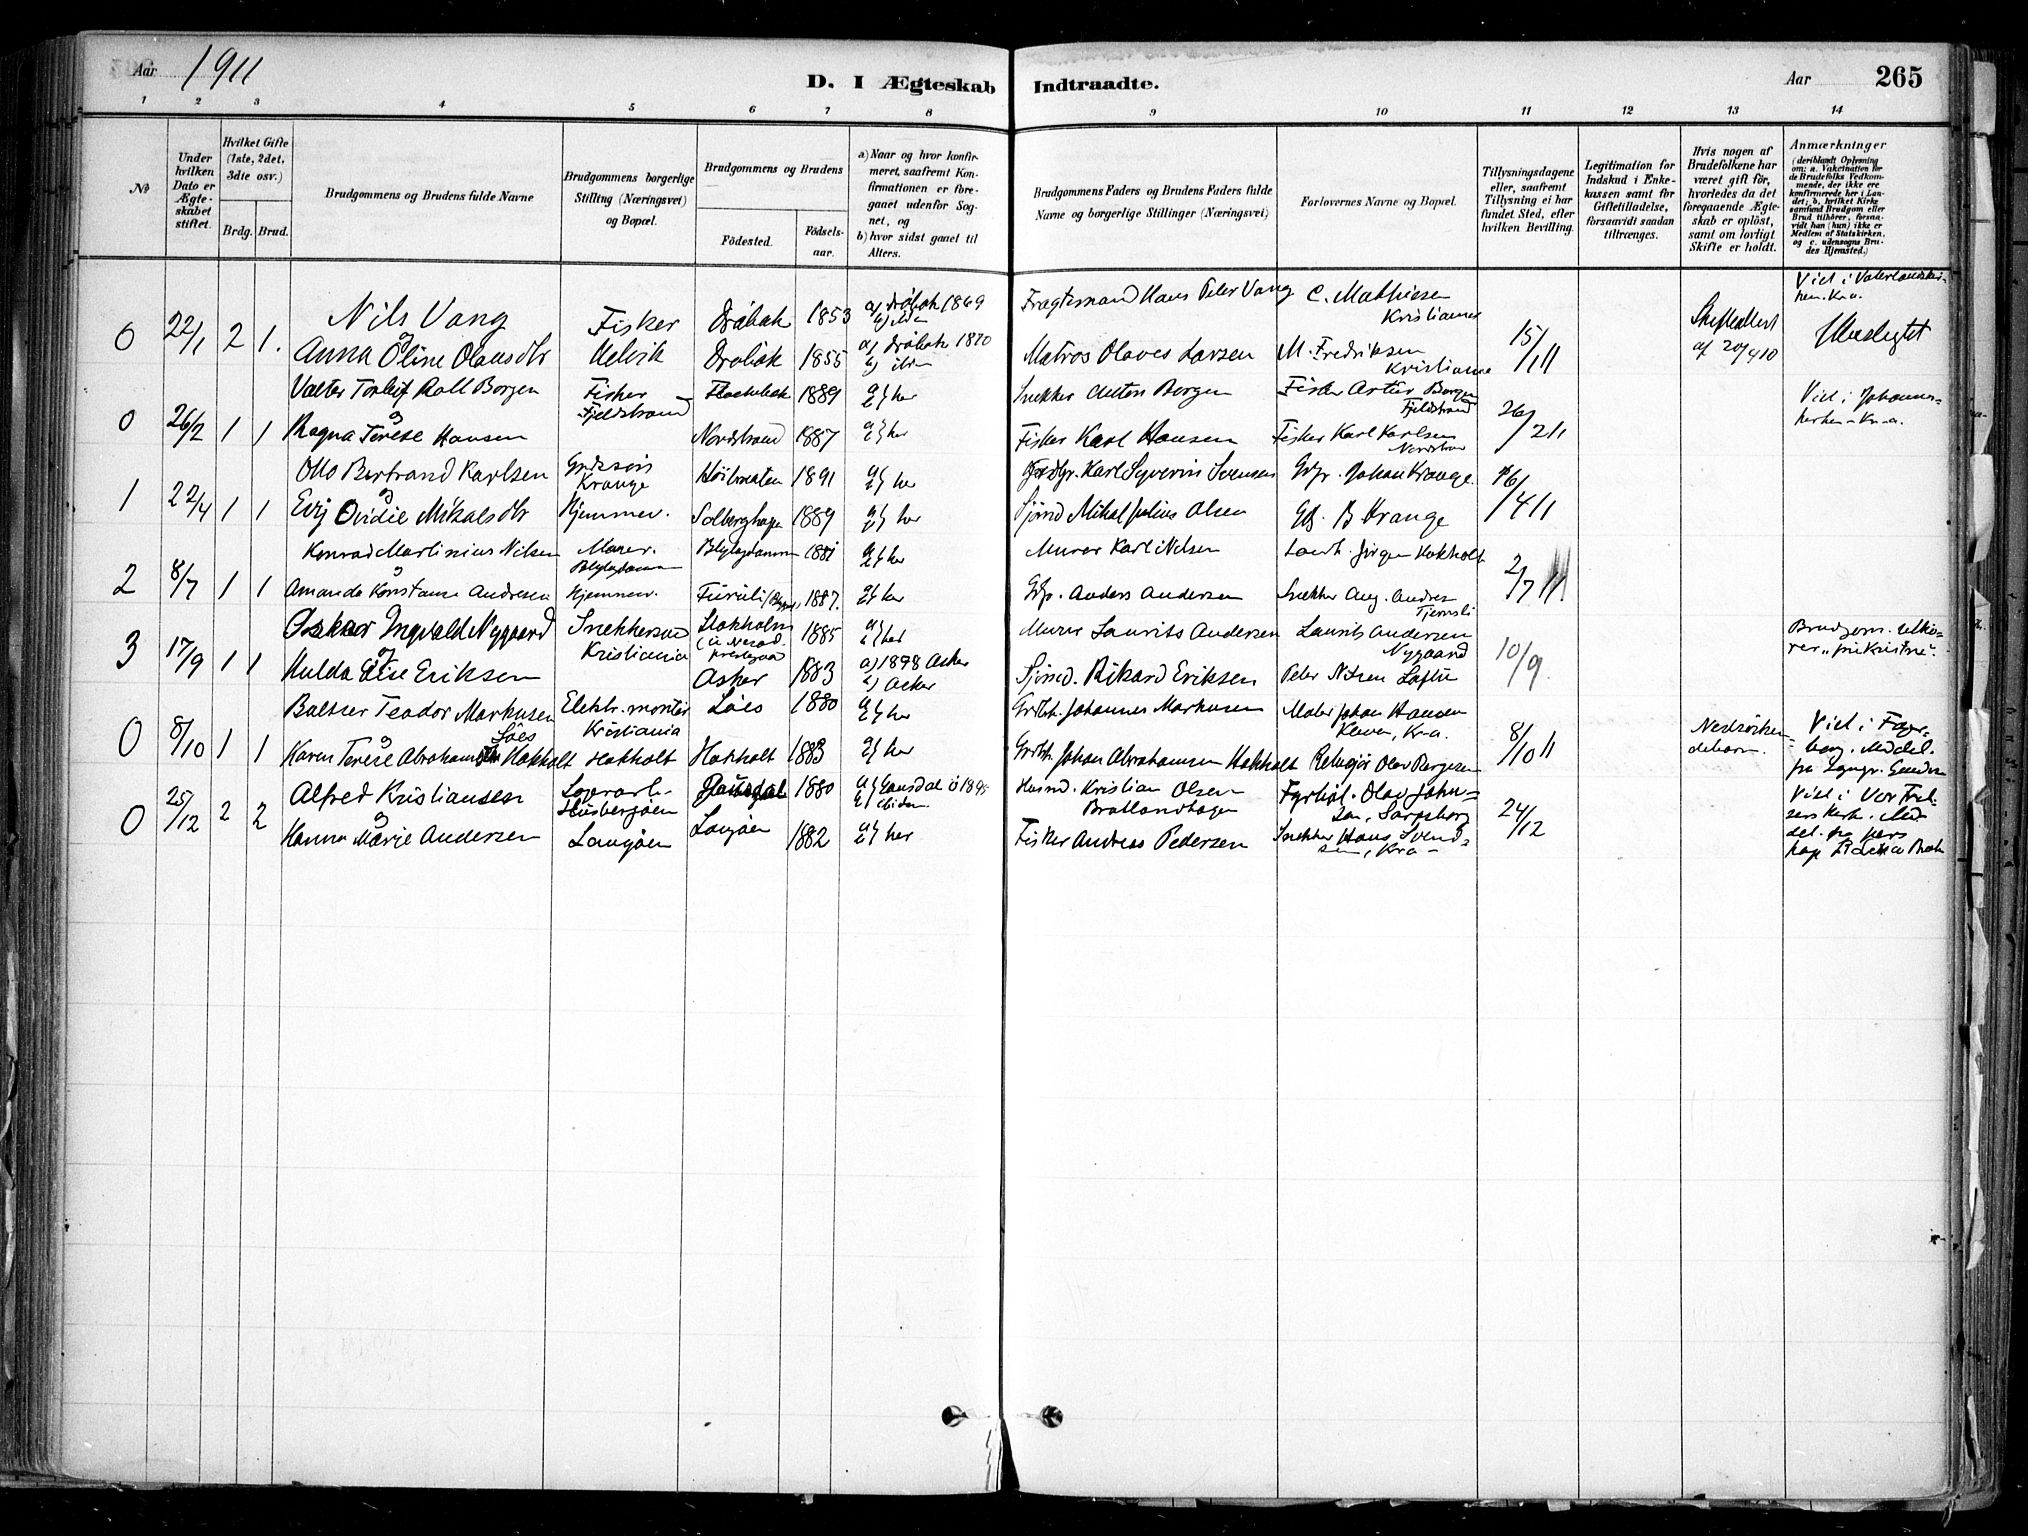 Aar 1911
D. I Ægteskab Indtraadte.
Aar 265
1 2 3 4 5 6 7 8 9 10 11 12 13 14
No
Under hvilken Dato er Ægteskabet stiftet.
Hvilket Gifte (1ste, 2det, 3die osv.)
Brdg. Brud.
Brudgommens og Brudens fulde Navne
Brudgommens borgerlige Stilling (Næringsvei) og Bopæl.
Brudgommens og Brudens
Fødested.
Fødselsaar.
a) Naar og hvor konfirmeret, saafremt Konfirmationen er foregaaet udenfor Sognet, og
b) hvor sidst gaaet til Alters.
Brudgommens Faders og Brudens Faders fulde Navne og borgerlige Stillinger (Næringsvei)
Forlovernes Navne og Bopæl.
Tillysningsdagene eller, saafremt Tillysning ei har fundet Sted, efter hvilken Bevilling.
Legitimation for Indskud i Enkekassen samt for Giftetilladelse, forsaavidt saadan tiltrænges.
Hvis nogen af Brudefolkene har været gift før, hvorledes da det foregaaende Ægteskab er opløst, samt om lovligt Skifte er holdt.
Anmærkninger (deriblandt Oplysning om: a. Vakcination for de Brudefolks Vedkommende, der ikke ere konfirmerede her i Landet; b. hvilket Kirkesamfund Brudgom eller Brud tilhører, forsaavidt han (hun) ikke er Medlem af Statskirken, og c. udensogns Brudes Hjemsted.)
0 22/1 2 1. Nils Vang Fisker Drøbak 1853 a) Drøbak 1869 Fragtemand Hans Peter Vang C. Mathiesen Kristiania 15/1 11 af 20/4 10 Viet i Vaterlandskirken. Kr.a.
Anna Oline Olausdtr Helvik Drøbak 1855 a) Drøbak 1870 Matros Olaves Larsen M. Fredriksen Kristiania Ubeslegtet
0 26/2 1 1 Valter Torleif Rolf Borgen Fisker Fjeldstrand 1889 a) b) her Snekker Anton Borgen Fisker Artur Borgen Fjeldstrand 26/2 11 Viet i Johanneskirken - Kr-a.
Ragna Terese Hansen Nordstrand 1887 a) b) her Fisker Karl Hansen Fisker Karl Karlsen Nordstrand
1 22/4 1 1 Otto Bertrand Karlsen Krange 1891 a) b) her Karl Syverin Svensen Gbr. Johan Krange. 16/4 11
Ovidie Mikalsdtr Hjemmev. Solberghagen 1889 a) b) her Sjømd Mikal Julius Olsen B Krange
2 8/7 1 1 Konrad Martinius Nilsen Murer. 1881 a) b) her Murer Karl Nilsen Jørgen Kokholt 2/7 11.
Amanda Konstanse Andresen Hjemmev. Furuli 1887. a) b) her Gbr. Anders Andersen Snekker Aug. Andresen
3 17/9 1 1 Oskar Ingvald Nygaard Snekkersvend Kristiania Stokholm 1885 a) b) her Murer Laurits Andersen Laurits Andersen Nygaard 10/9
Hulda Elise Eriksen Asker 1883 a) 1898 Asker b) Asker Sjømd. Rikard Eriksen Peter Nilsen
0 8/10 1 1 Baltser Teodor Markusen Løes Elektr. montør Kristiania Løes 1880 a) b) her Johannes Markusen Maler Johan Hansen Kr.a. 8/10 11 Viet i Fagerborg. Meddel. fra
Karen Terese Abrahamsdtr Hokholt Hokholt Hokholt 1883 a) b) her Johan Abrahamsen Hokholt
0 25/12 2 2 Alfred Kristiansen 1880 1895 Husmd. Kristian Olsen Bratlandhagen Fyrbøt. Olav Johnsen, Sarpsborg 24/12 Viet i Vor Frelsers Kirke. Meddel. fra
Hanna Marie Andersen Langøen Langøen 1882 a) b) her Fisker Andreas Pedersen Snekker Hans Svendsen, Kra-